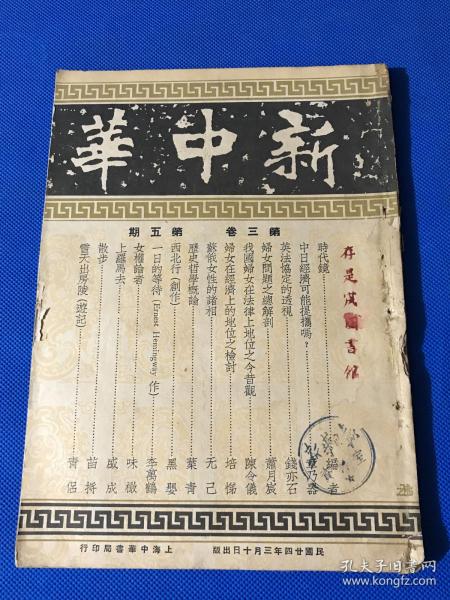 新中華
第三卷 第五期
時代鏡 編者
中日經濟可能提攜嗎？ 章乃器
英法協定的透視 錢亦石
婦女問題之總解剖 蕭月宸
我國婦女在法律上地位之今昔觀 陳令儀
婦女在經濟上的地位之檢討 培悌
蘇俄女性的諸相 无己
歷史哲學概論 葉青
西北行（創作） 黑嬰
一日的等待（Ernest Hemingway 作） 李萬鶴
女權論者 味橄
上羅馬去 威成
散步 苗埒
雪天出房隊（遊記） 青侶
存是淇圖書館
民國廿四年三月十日出版
上海中華書局印行
孔夫子旧书网
kongfz.com